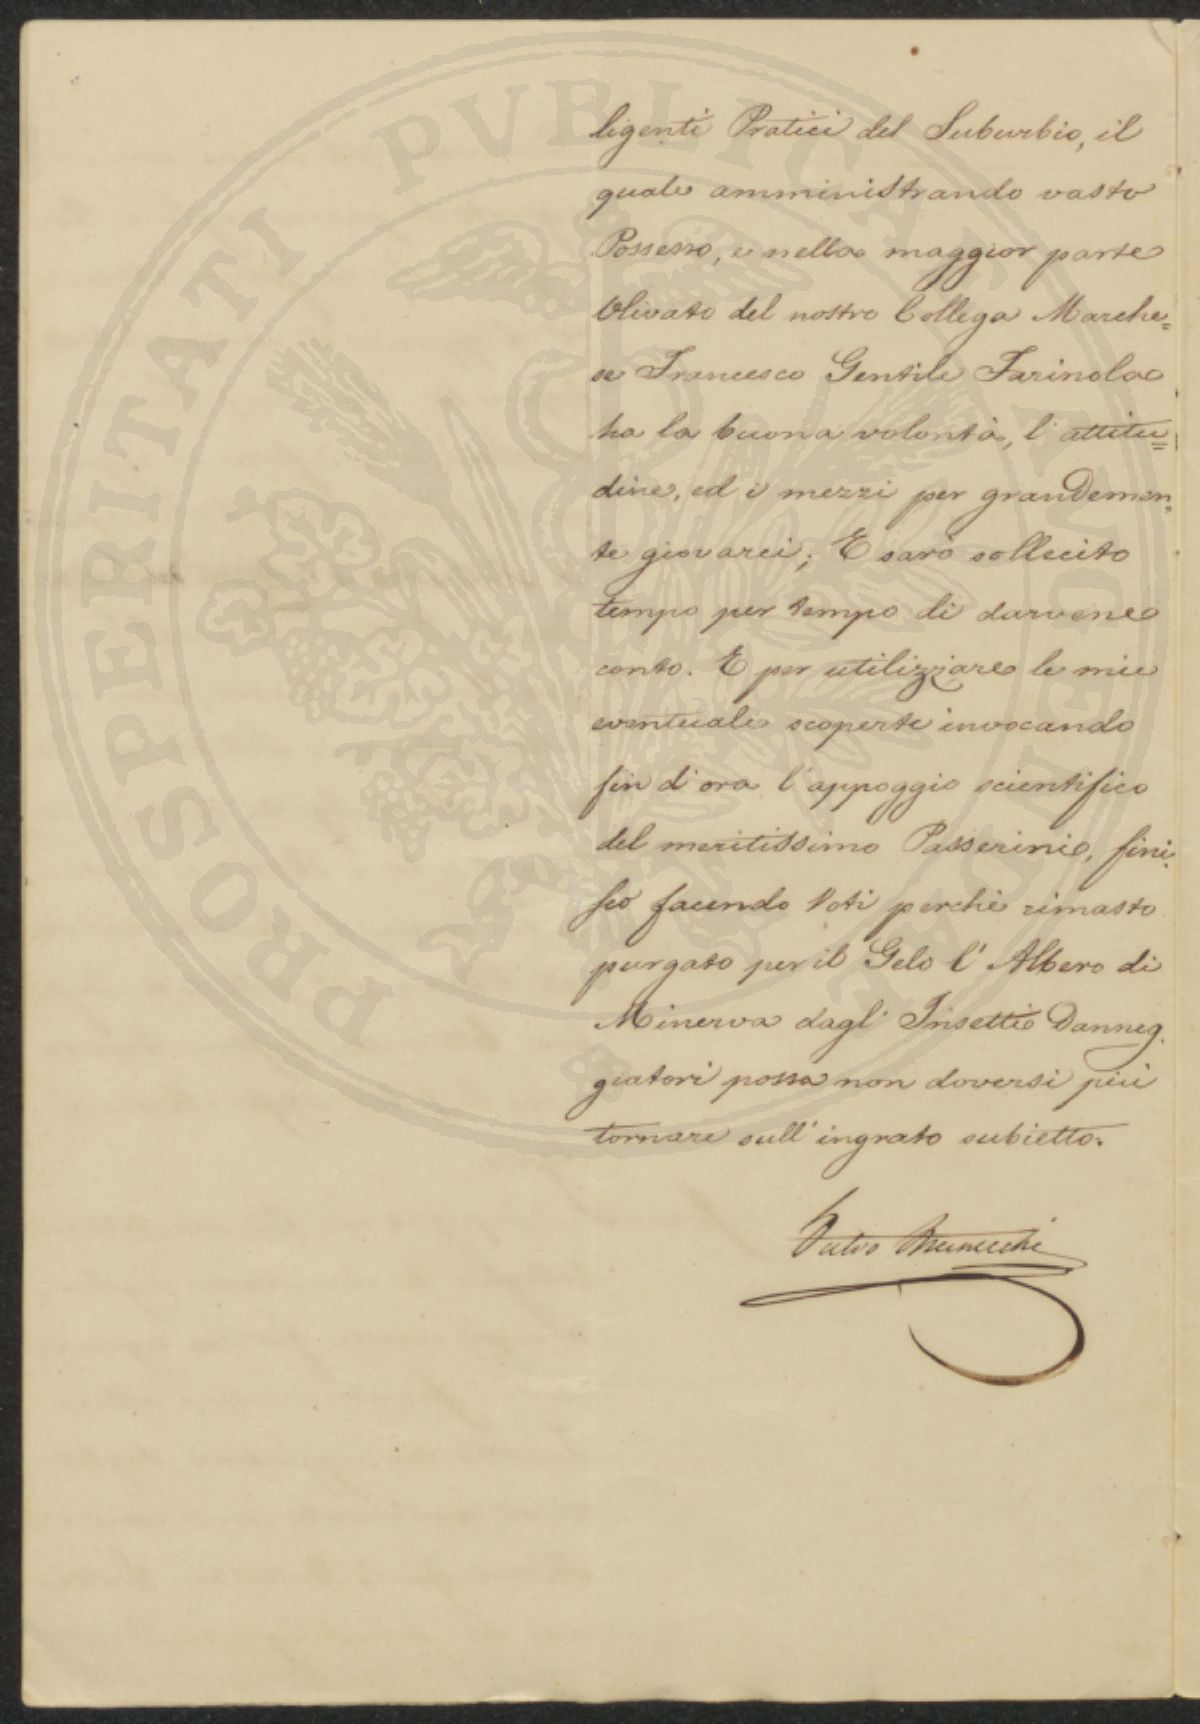 ligenti Pratici del Suburbio, il
quale amministrando vasto
Possesso, e nella maggior parte
Olivato del nostro Collega Marche=
se Francesco Gentile Farinola
ha la buona volontà, l'attitu=
dine, ed i mezzi per grandemen,
te giovarci; E sarò sollecito
tempo per tempo di darvene
conto. E per utilizzare le mie
eventuali scoperte invocando
fin d'ora l'appoggio scientifico
del meritissimo Passerini, fini.
sco facendo Voti perchè rimasto
purgato per il Gelo l'Albero di
Minerva dagl' Insetti Danneg.
giatori possa non doversi più
tornare sull'ingrato subietto.
PROSPERITATI PVBLICAE AVGENDAE